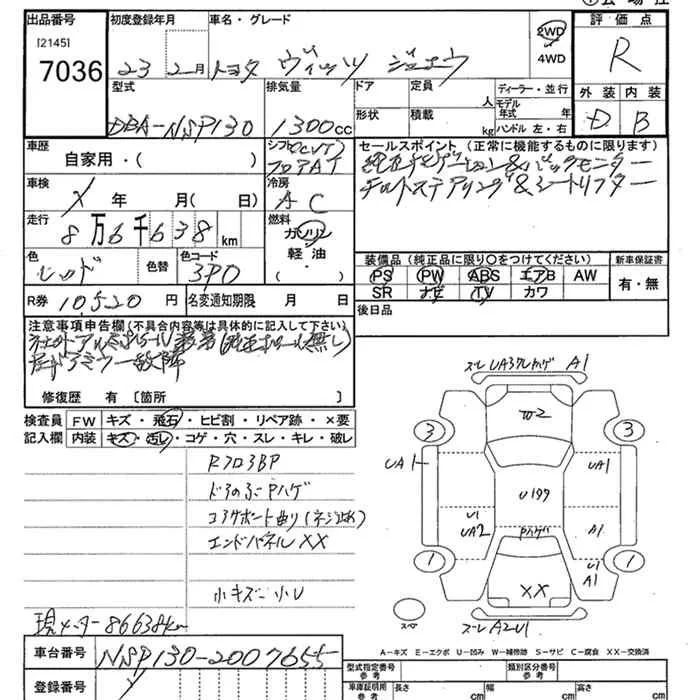 出品番号
[2145]
7036
初度登録年月
23 2月
車名・グレード
トヨタ ヴィッツ ジュエラ
2WD
4WD
評価点
R
外装 内装
D B
型式
DBA-NSP130
排気量
1300cc
ドア
形状
定員
人
積載
kg
ディーラー・並行
モデル年式 年
ハンドル 左・右
車歴
自家用・( )
シフト(CVT)
フロアAT
セールスポイント (正常に機能するものに限ります)
純正ナビゲーション&バックモニター
チルトステアリング&シートリフター
車検
年 月( 日)
冷房
AC
走行
8万6千638km
燃料
ガソリン
軽油
( )
色
レッド
色替
色コード
3P0
装備品 (純正品に限り○をつけてください)
PS PW ABS エアB AW
SR ナビ TV カワ
新車保証書
有・無
R券 10,520円
名変通知期限 月 日
後日品
注意事項申告欄(不具合内容等は具体的に記入して下さい)
社外アルミホイール装着(純正ホイール無し)
修復歴 有〔箇所 〕
検査員記入欄
FW キズ・飛石・ヒビ割・リペア跡・×要
内装 キズ・汚レ・コゲ・穴・スレ・キレ・破レ
RフロアBP
コアサポート曲り(ネジ止め)
エンドパネルXX
小キズ 小U
現メーター86638km
車台番号 NSP130-2007655
登録番号
A1
W2
3 3
UA1 UA1
U197
U1
UA2
A1
Pハゲ
1 1
U1
A1
XX
スレA2U1
スペア
A-キズ E-エクボ U-凹み W-補修跡 S-サビ C-腐食 XX-交換済
型式指定番号 参考
類別区分番号 参考
車庫証明用 参考 長さ cm 幅 cm 高さ cm